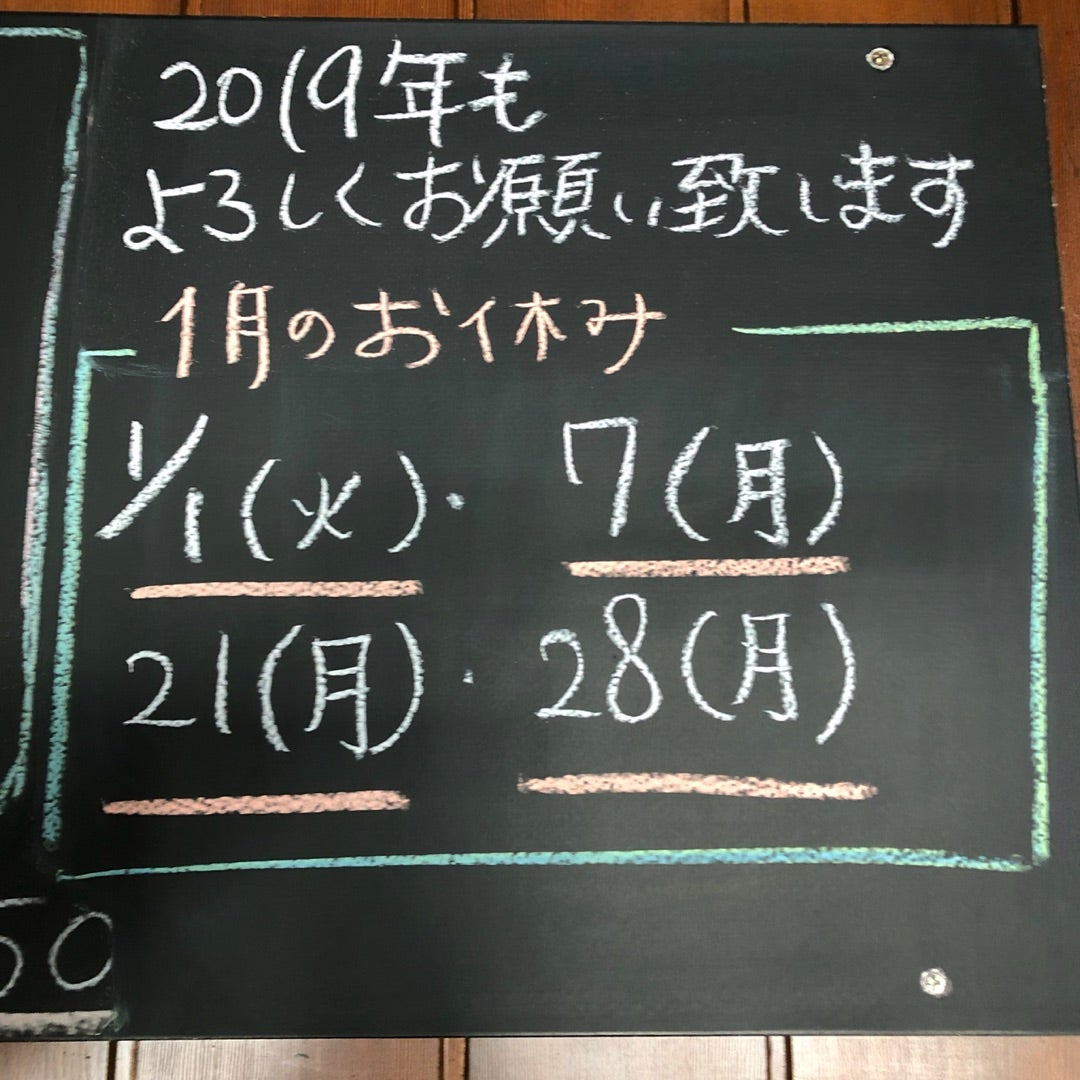 2019年も
よろしくお願い致します
1月のお休み
1/1(火)・ 7(月)
21(月)・ 28(月)
50